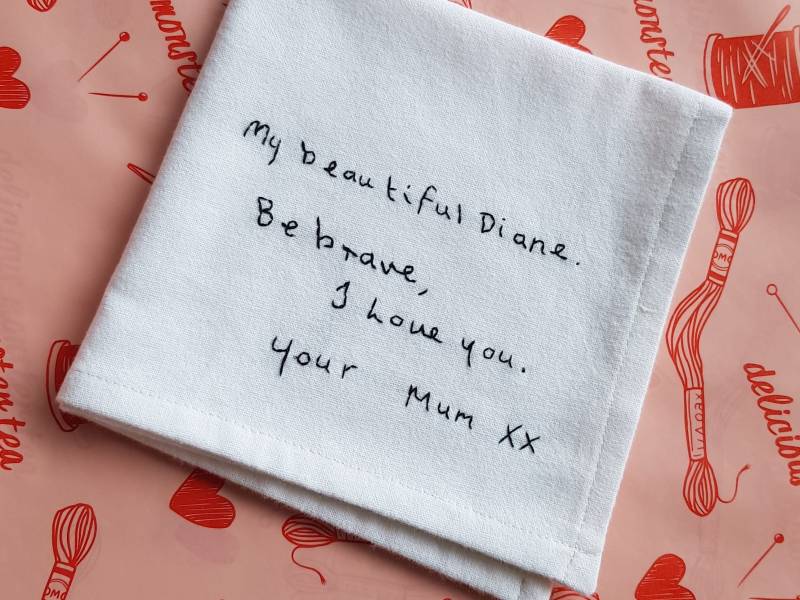 My beautiful Diane.
Be brave,
I love you.
Your Mum XX
monste
monste
delicious
monstea
DMC
DMC